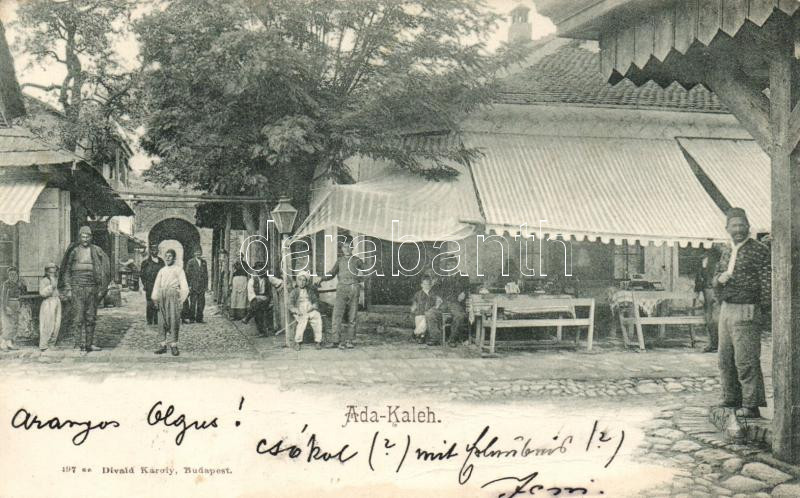 darabanth.com
Ada-Kaleh.
Aranyos Olgus!
csókol (?) mit
(?)
497 sz Divald Károly, Budapest.